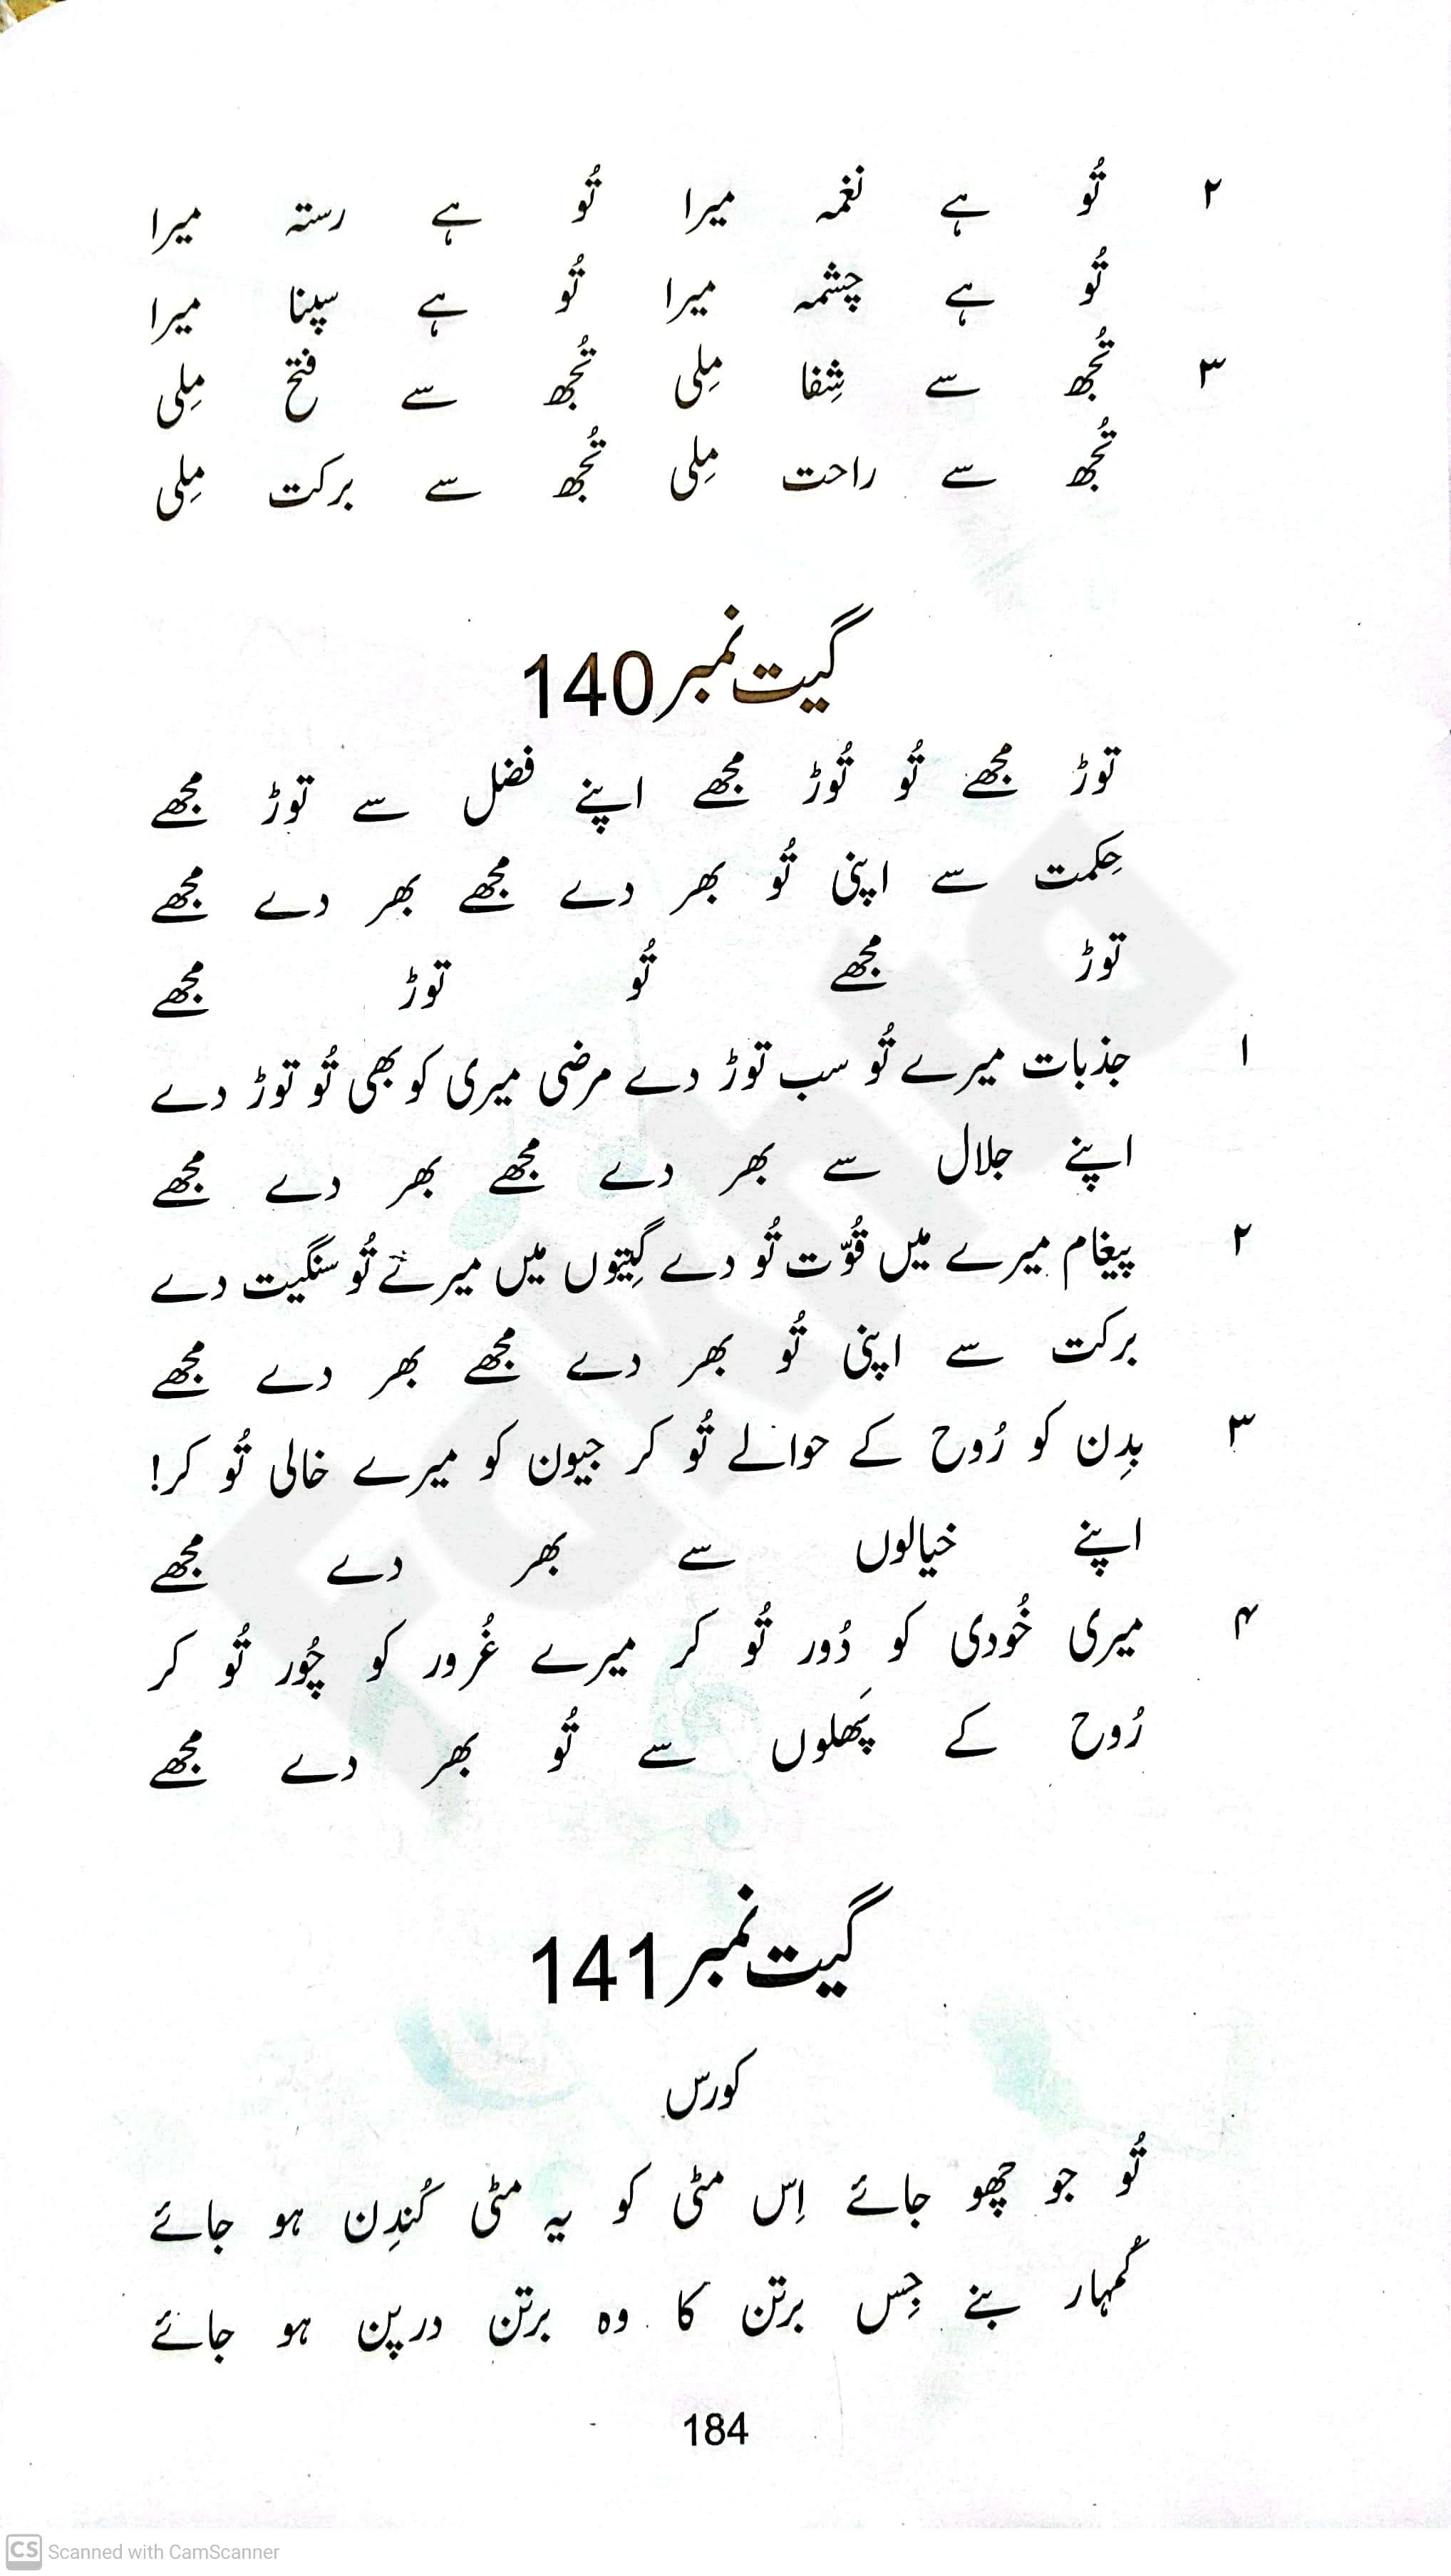 ۲ تُو ہے نغمہ میرا تُو ہے رستہ میرا
تُو ہے چشمہ میرا تُو ہے سپنا میرا
۳ تُجھ سے شِفا مِلی تُجھ سے فتح مِلی
تُجھ سے راحت مِلی تُجھ سے برکت مِلی
گیت نمبر 140
توڑ مجھے تُو تُوڑ مجھے اپنے فضل سے توڑ مجھے
حِکمت سے اپنی تُو بھر دے مجھے بھر دے مجھے
توڑ مجھے تُو توڑ مجھے
۱ جذبات میرے تُو سب توڑ دے مرضی میری کو بھی تُو توڑ دے
اپنے جلال سے بھر دے مجھے بھر دے مجھے
۲ پیغام میرے میں قُوّت تُو دے گِیتوں میں میرے تُو سنگیت دے
برکت سے اپنی تُو بھر دے مجھے بھر دے مجھے
۳ بدِن کو رُوح کے حوالے تُو کر جیون کو میرے خالی تُو کر!
اپنے خیالوں سے بھر دے مجھے
۴ میری خُودی کو دُور تُو کر میرے غُرور کو چُور تُو کر
رُوح کے پَھلوں سے تُو بھر دے مجھے
گیت نمبر 141
کورس
تُو جو چھو جائے اِس مٹی کو یہ مٹی کُندِن ہو جائے
کُمہار بنے جِس برتن کا وہ برتن درپن ہو جائے
184
Fakhra
CS Scanned with CamScanner